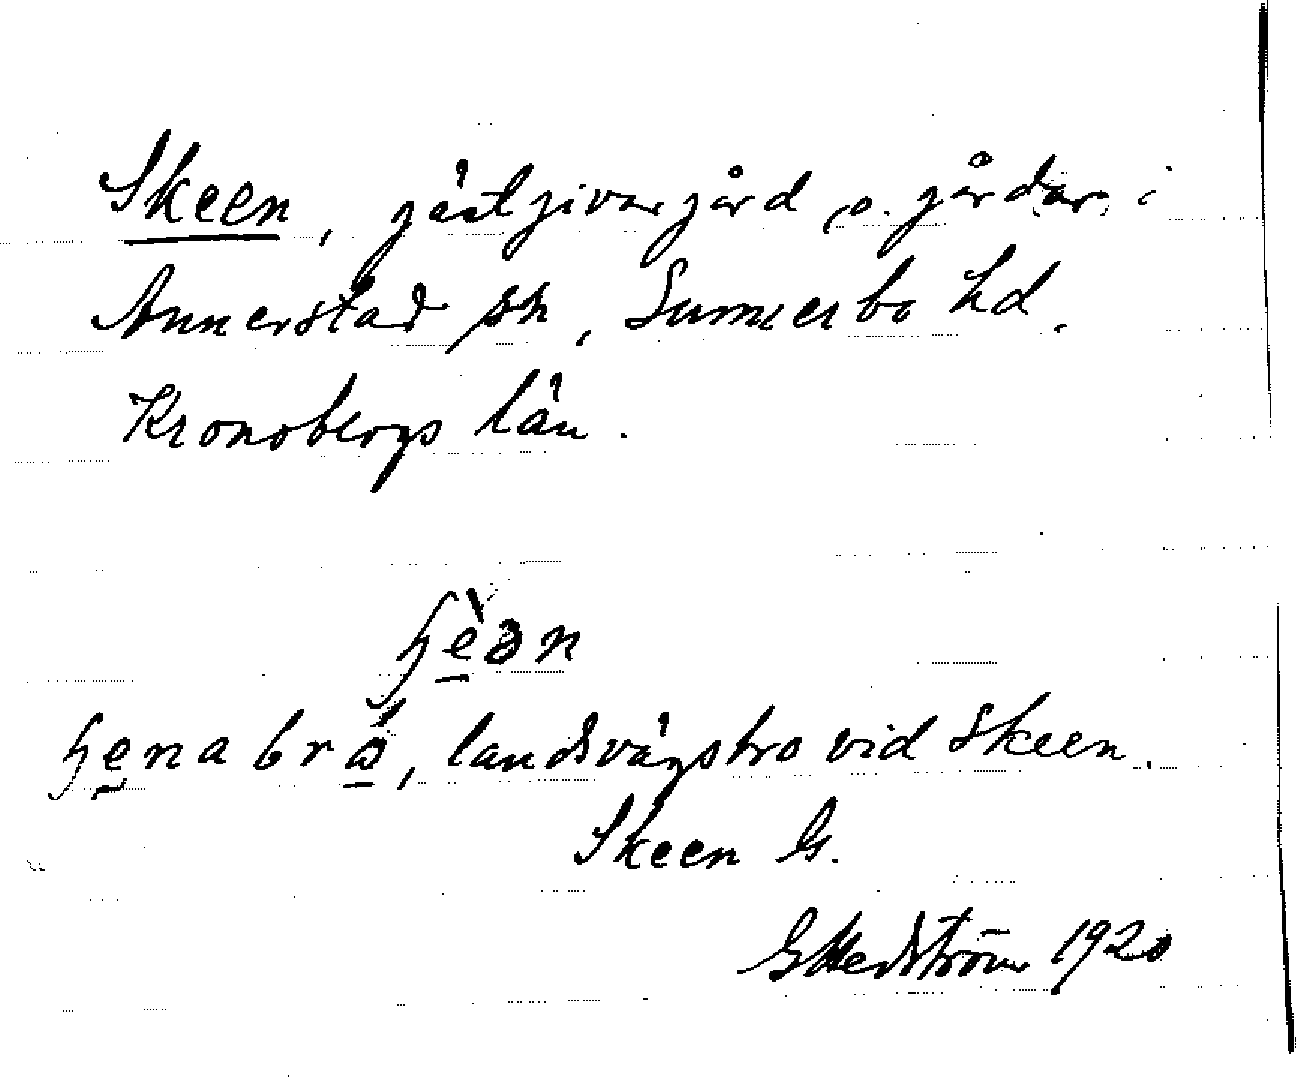 Skeen, gästgivaregård o. gårdar i
Annerstad sn, Sunnerbo hd,
Kronobergs län.
ɧè̠ən
ɧe̠nabrώ̠, landsvägsbro vid Skeen.
Skeen G.
G Hedström 1920